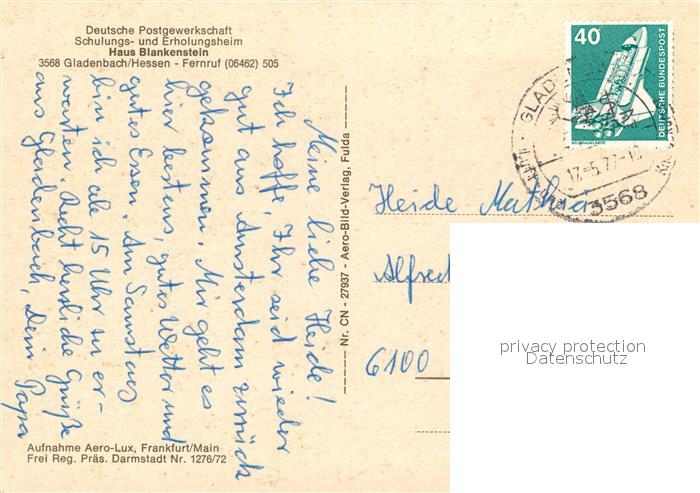 Deutsche Postgewerkschaft
Schulungs- und Erholungsheim
Haus Blankenstein
3568 Gladenbach/Hessen - Fernruf (06462) 505
Meine liebe Heide!
Ich hoffe, Ihr seid wieder
gut aus Amsterdam zurück
gekommen. Mir geht es
hier bestens, gutes Wetter und
gutes Essen. Am Samstag
bin ich ab 15 Uhr zu er-
warten. Recht herzliche Grüße
aus Gladenbach, Dein Papa
Aufnahme Aero-Lux, Frankfurt/Main
Frei Reg. Präs. Darmstadt Nr. 1276/72
Nr. CN - 27937 - Aero-Bild-Verlag, Fulda
40
DEUTSCHE BUNDESPOST
GLAD
17.-5.77-1
3568
Heide
Alfred
6100
privacy protection
Datenschutz